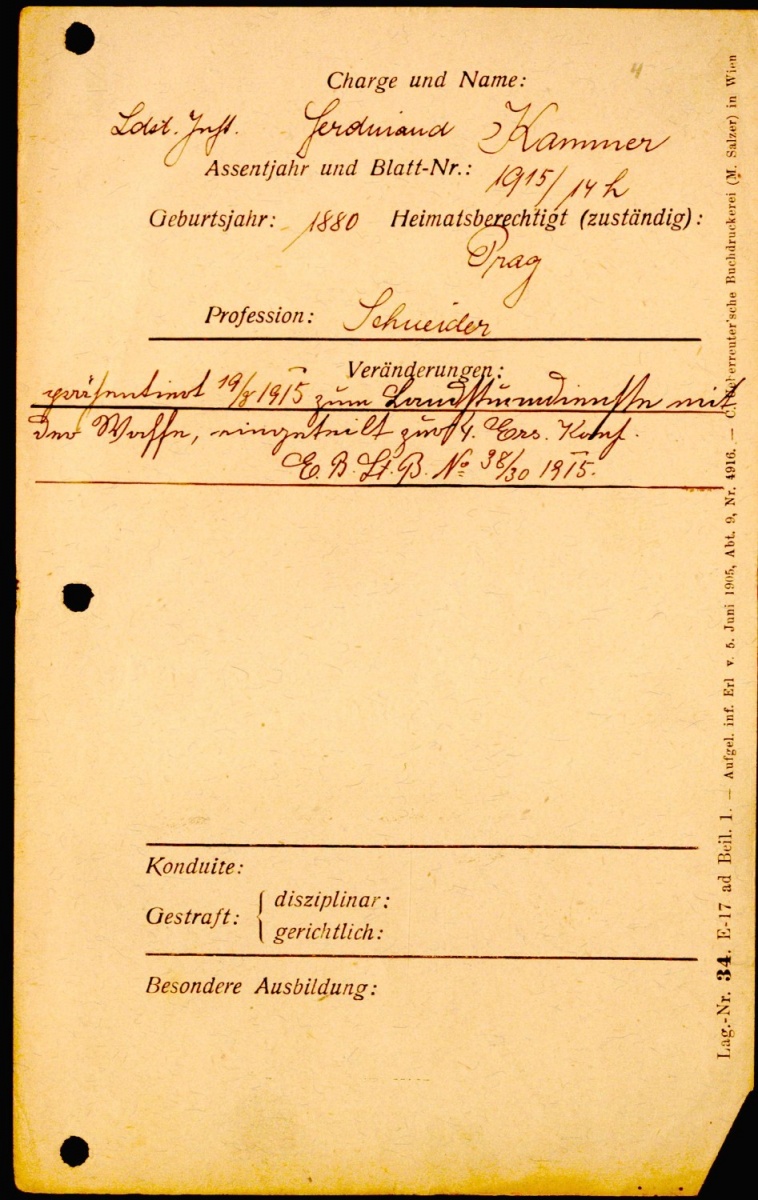 4
Charge und Name:
Ldst. Inft. Ferdinand Kammer
Assentjahr und Blatt-Nr.: 1915/14 h
Geburtsjahr: 1880 Heimatsberechtigt (zuständig):
Prag
Profession: Schneider
Veränderungen:
präsentiert 19/8 1915 zum Landsturmdienste mit
der Waffe, eingeteilt zur 4. Ers. Komp.
E. B. St. B. No 38/30 1915.
Konduite:
Gestraft: { disziplinar:
gerichtlich:
Besondere Ausbildung:
Lag.-Nr. 34. E-17 ad Beil. 1. — Aufgel. inf. Erl v. 5. Juni 1905, Abt. 9, Nr. 4916. — C. Ueberreuter'sche Buchdruckerei (M. Salzer) in Wien